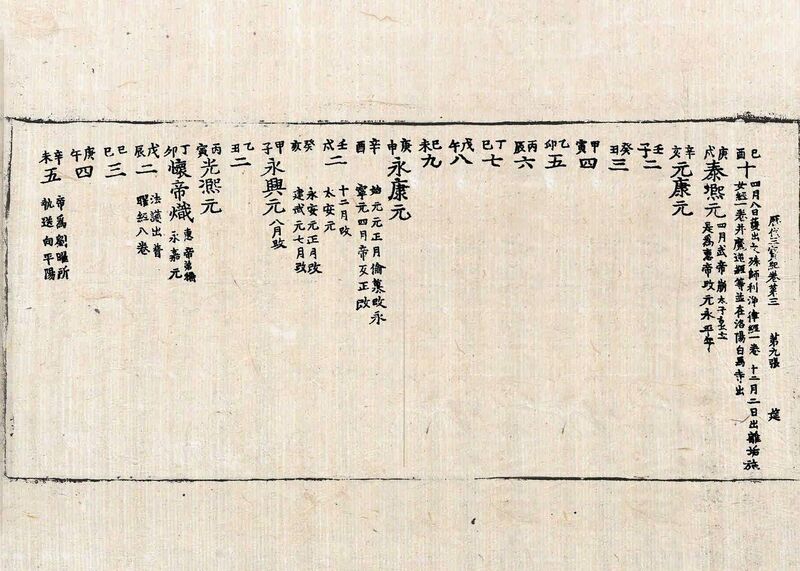 歷代三寶紀卷第三 第九張
己酉 十 四月八日護出文殊師利淨律經一卷 十二月二日出離垢施
女經一卷并魔逆經等並在洛陽白馬寺出
庚戌 泰熙元 四月武帝崩太子立
是為惠帝改元永平年
辛亥 元康元
壬子 二
癸丑 三
甲寅 四
乙卯 五
丙辰 六
丁巳 七
戊午 八
己未 九
庚申 永康元
辛酉 始元元正月倫篡改永
寧元四月帝反正改
壬戌 二 十二月改
太安元
癸亥 永安元正月改
建武元七月改
甲子 永興元 八月改
乙丑 二
丙寅 光熙元
丁卯 懷帝熾 惠帝弟
永嘉元
戊辰 二 法護出普
曜經八卷
己巳 三
庚午 四
辛未 五 帝為劉曜所
執送向平陽